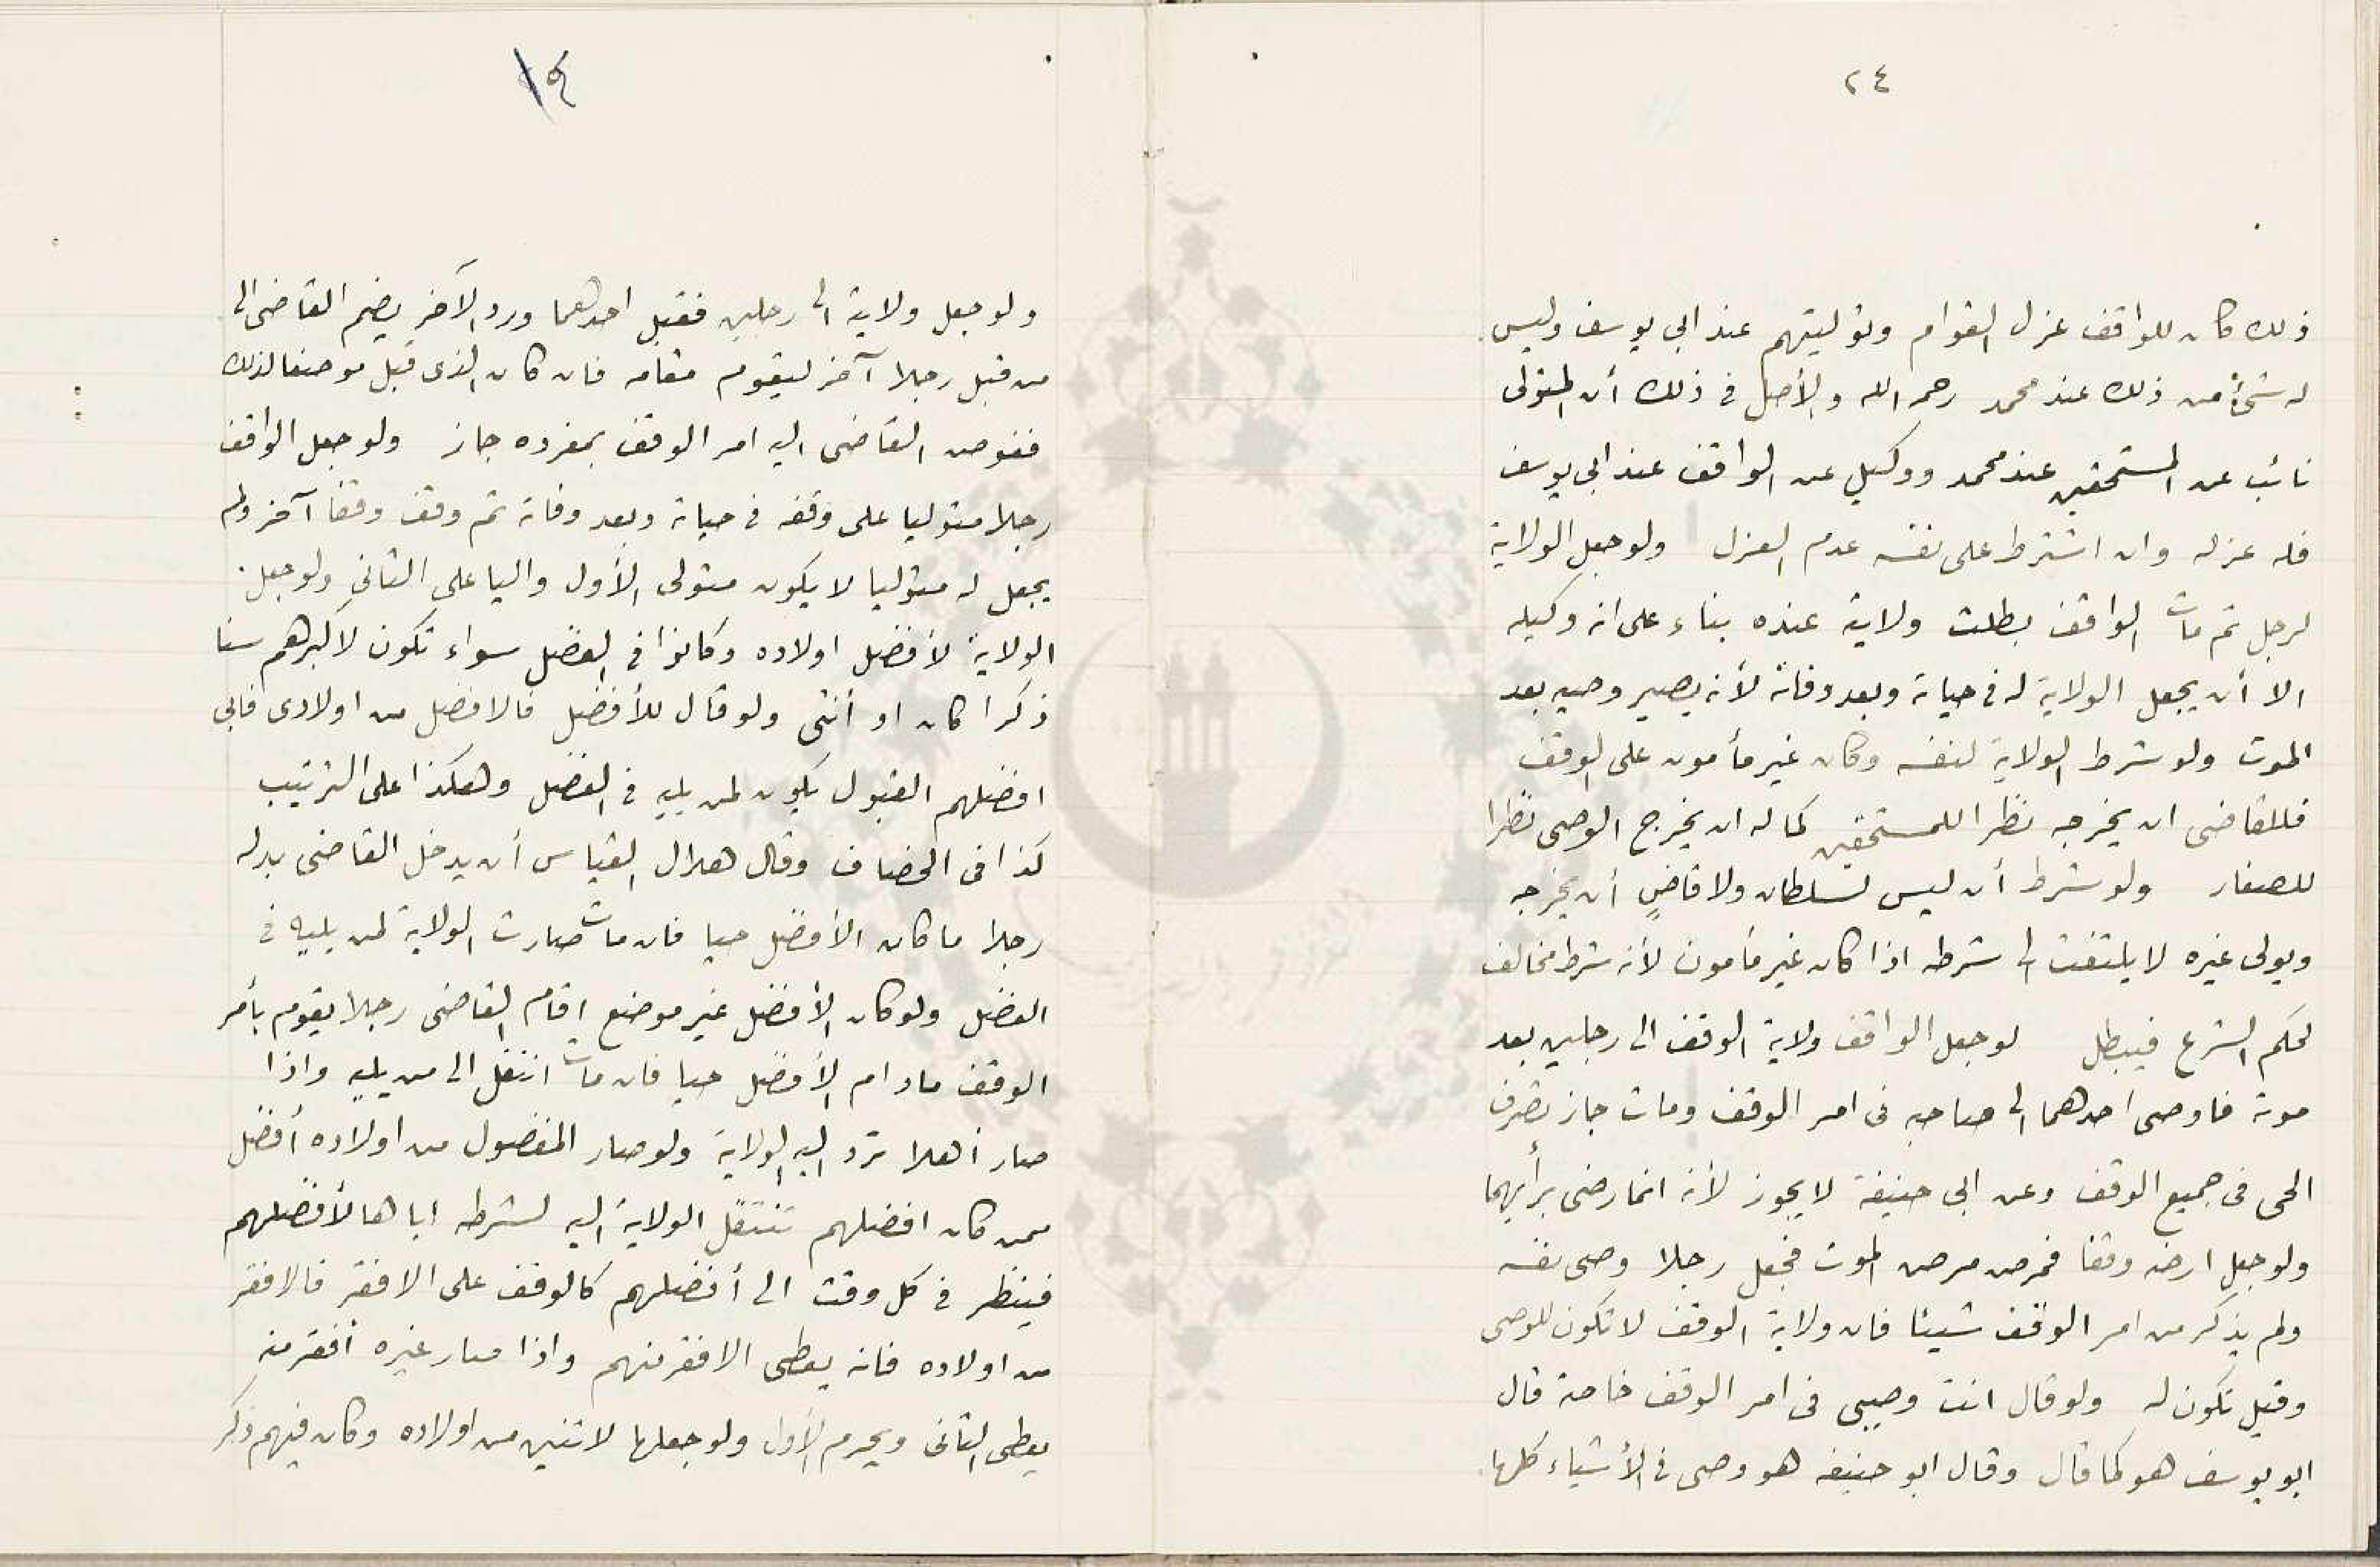 ٢٤
ذلك كان للواقف عزل القوام وتوليتهم عند ابى يوسف وليس
له شئ من ذلك عند محمد رحمه الله والأصل فى ذلك أن المتولى
نائب عن المستحقين عند محمد ووكيل عن الواقف عند ابى يوسف
فله عزله وان اشترط على نفسه عدم العزل ولو جعل الولاية
لرجل ثم مات الواقف بطلت ولايته عنده بناء على انه وكيله
الا أن يجعل الولاية له فى حياته وبعد وفاته لأنه يصير وصيه بعد
الموت ولو شرط الولاية لنفسه وكان غير مأمون على الوقف
فللقاضى ان يخرجه نظرا للمستحقين كما له ان يخرج الوصى نظرا
للصغار ولو شرط أن ليس لسلطان ولا قاضٍ أن يخرجه
ويولى غيره لا يلتفت الى شرطه اذا كان غير مأمون لأنه شرط مخالف
لحكم الشرع فيبطل لو جعل الواقف ولاية الوقف الى رجلين بعد
موته فاوصى احدهما الى صاحبه فى امر الوقف ومات جاز تصرف
الحى فى جميع الوقف وعن ابى حنيفة لا يجوز لأنه انما رضى برأيهما
ولو جعل ارضه وقفا فمرض مرض الموت فجعل رجلا وصى نفسه
ولم يذكر من امر الوقف شيئا فان ولاية الوقف لا تكون للوصى
وقيل تكون له ولو قال انت وصيى فى امر الوقف خاصة قال
ابو يوسف هو كما قال وقال ابو حنيفه هو وصى فى الأشياء كلها
ولو جعل ولايته الى رجلين فقبل احدهما ورد الآخر يضم القاضى الى
من قبل رجلا آخر ليقوم مقامه فان كان الذى قبل موضعا لذلك
ففوض القاضى اليه امر الوقف بمفرده جاز ولو جعل الواقف
رجلا متوليا على وقفه فى حياته وبعد وفاته ثم وقف وقفا آخر ولم
يجعل له متوليا لا يكون متولى الأول واليا على الثانى ولو جعل
الولاية لأفضل اولاده وكانوا فى الفضل سواء تكون لأكبرهم سنا
ذكرا كان او أنثى ولو قال للأفضل فالافضل من اولادى فابى
افضلهم القبول يكون لمن يليه فى الفضل وهكذا على الترتيب
كذا فى الخصاف وقال هلال القياس أن يدخل القاضى بدله
رجلا ما كان الأفضل حيا فان مات صارت الولاية لمن يليه فى
الفضل ولو كان الأفضل غير موضع اقام القاضى رجلا يقوم بأمر
الوقف مادام الأفضل حيا فان مات انتقل الى من يليه واذا
صار أهلا ترد اليه الولاية ولو صار المفضول من اولاده أفضل
ممن كان افضلهم تنتقل الولاية اليه لشرطه اياها لأفضلهم
فينظر فى كل وقت الى أفضلهم كالوقف على الافقر فالافقر
من اولاده فانه يعطى الافقر منهم واذا صار غيره أفقر منه
يعطى الثانى ويحرم الأول ولو جعلها لاثنين من اولاده وكان فيهم ذكر